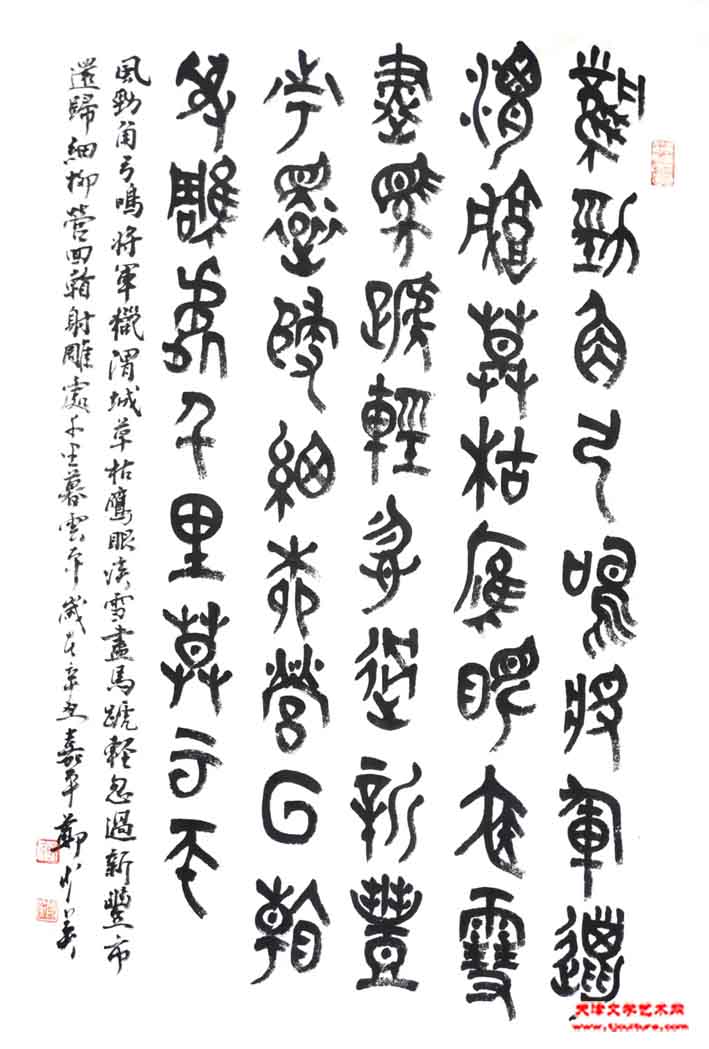 風勁角弓鳴將軍獵
渭城草枯鷹眼疾雪
盡馬蹏輕忽過新豐
市還歸細柳營回翰
射雕處千里暮雲平
風勁角弓鳴將軍獵渭城草枯鷹眼疾雪盡馬蹏輕忽過新豐市
還歸細柳營回翰射雕處千里暮雲平歲在辛丑嘉平鄭少
天津文学艺术网
www.tjculture.com